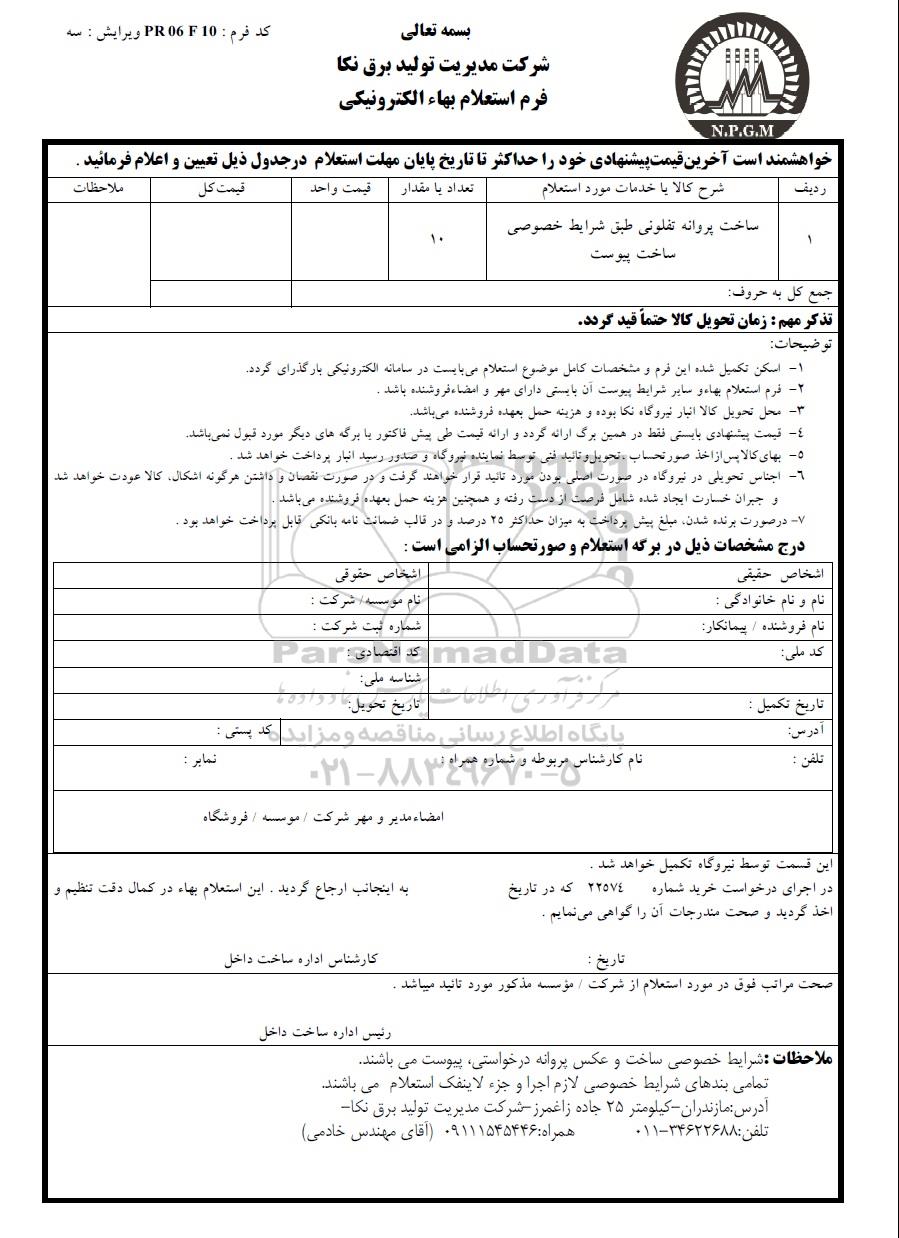 بسمه تعالی
کد فرم : PR 06 F 10 ویرایش : سه
شرکت مدیریت تولید برق نکا
فرم استعلام بهاء الکترونیکی
N.P.G.M
خواهشمند است آخرین‌قیمت‌پیشنهادی خود را حداکثر تا تاریخ پایان مهلت استعلام درجدول ذیل تعیین و اعلام فرمائید .
ردیف شرح کالا یا خدمات مورد استعلام تعداد یا مقدار قیمت واحد قیمت‌کل ملاحظات
۱ ساخت پروانه تفلونی طبق شرایط خصوصی ۱۰
ساخت پیوست
جمع کل به حروف:
تذکر مهم : زمان تحویل کالا حتماً قید گردد.
توضیحات:
۱- اسکن تکمیل شده این فرم و مشخصات کامل موضوع استعلام می‌بایست در سامانه الکترونیکی بارگذرای گردد.
۲- فرم استعلام بهاءو سایر شرایط پیوست آن بایستی دارای مهر و امضاءفروشنده باشد .
۳- محل تحویل کالا انبار نیروگاه نکا بوده و هزینه حمل بعهده فروشنده می‌باشد.
۴- قیمت پیشنهادی بایستی فقط در همین برگ ارائه گردد و ارائه قیمت طی پیش فاکتور یا برگه های دیگر مورد قبول نمی‌باشد.
۵- بهای‌کالاپس‌ازاخذ صورتحساب ،تحویل‌وتائید فنی توسط نماینده نیروگاه و صدور رسید انبار پرداخت خواهد شد .
۶- اجناس تحویلی در نیروگاه در صورت اصلی بودن مورد تائید قرار خواهند گرفت و در صورت نقصان و داشتن هرگونه اشکال، کالا عودت خواهد شد
و جبران خسارت ایجاد شده شامل فرصت از دست رفته و همچنین هزینه حمل بعهده فروشنده می‌باشد .
۷- درصورت برنده شدن، مبلغ پیش پرداخت به میزان حداکثر ۲۵ درصد و در قالب ضمانت نامه بانکی قابل پرداخت خواهد بود .
درج مشخصات ذیل در برگه استعلام و صورتحساب الزامی است :
اشخاص حقیقی اشخاص حقوقی
نام و نام خانوادگی : نام موسسه/ شرکت :
نام فروشنده / پیمانکار: شماره ثبت شرکت :
کد ملی: کد اقتصادی :
شناسه ملی:
تاریخ تکمیل : تاریخ تحویل:
آدرس: کد پستی :
تلفن : نام کارشناس مربوطه و شماره همراه : نمابر :
امضاءمدیر و مهر شرکت / موسسه / فروشگاه
ParsNamadData
مرکز فرآوری اطلاعات پارس نماد داده ها
پایگاه اطلاع رسانی مناقصه و مزایده
۰۲۱-۸۸۳۴۹۶۷۰-۵
این قسمت توسط نیروگاه تکمیل خواهد شد .
در اجرای درخواست خرید شماره ۲۲۵۷۴ که در تاریخ به اینجانب ارجاع گردید . این استعلام بهاء در کمال دقت تنظیم و
اخذ گردید و صحت مندرجات آن را گواهی می‌نمایم .
تاریخ : کارشناس اداره ساخت داخل
صحت مراتب فوق در مورد استعلام از شرکت / مؤسسه مذکور مورد تائید میباشد .
رئیس اداره ساخت داخل
ملاحظات :شرایط خصوصی ساخت و عکس پروانه درخواستی، پیوست می باشند.
تمامی بندهای شرایط خصوصی لازم اجرا و جزء لاینفک استعلام می باشند.
آدرس:مازندران-کیلومتر ۲۵ جاده زاغمرز-شرکت مدیریت تولید برق نکا-
تلفن:۳۴۶۲۲۶۸۸-۰۱۱ همراه:۰۹۱۱۱۵۴۵۴۴۶ (آقای مهندس خادمی)